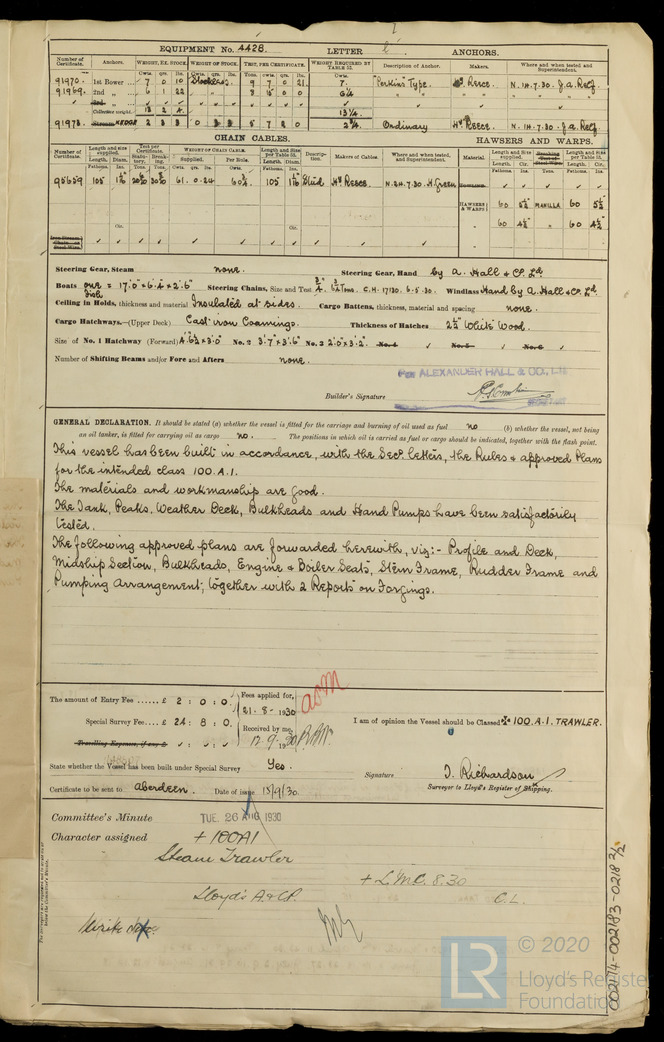 EQUIPMENT No. 4428. LETTER ANCHORS.
Number of Certificate. Anchors. WEIGHT, EX. STOCK. WEIGHT OF STOCK. TEST, PER CERTIFICATE. WEIGHT REQUIRED BY TABLE 53. Description of Anchor. Makers. Where and when tested and Superintendent.
Cwts. qrs. lbs. Cwts. qrs. lbs. Tons. cwts. qrs. lbs. Cwts.
91970. 1st Bower 7 0 10 Stockless. 9 7 0 21 7. "Perkins" Type. Reece. N. 14.7.30. J.A. Relf.
91969. 2nd " 6 1 22 6¼ " " " "
Collective weight. 13 2 4. 13¼.
91973. 2¾. Ordinary Hy Reece. N. 14.7.30. J.A. Relf.
CHAIN CABLES. HAWSERS AND WARPS.
Number of Certificate. Length and size supplied. Test per Certificate. WEIGHT OF CHAIN CABLE. Length and size per Table 53. Description. Makers of Cables. Where and when tested, and Superintendent. Material. Length and Size supplied. Length and Size per Table 53.
Length. Diam. Statutory. Breaking. Supplied. Per Rule. Length. Diam.
95659 105 61. 0. 24 60¾. 105 Stud Hy Reece. N. 24.7.30. H. Green
HAWSERS & WARPS 60 5½ MANILLA 60 5½
" 60 4½ " 60 4½
Steering Gear, Steam none. Steering Gear, Hand by A. Hall & Co. Ld.
Boats one = 17'0" × 6'.4" × 2'.6" Steering Chains, Size and Test C.H. 17130. 6.5.30. Windlass Hand by A. Hall & Co. Ld.
Ceiling in Holds, thickness and material Insulated at sides. Cargo Battens, thickness, material and spacing none.
Cargo Hatchways.—(Upper Deck) Cast iron Coamings. Thickness of Hatches 2½" White Wood.
Size of No. 1 Hatchway (Forward) 4'.6½" × 3'.0" No. 2 3'.7" × 3'.6" No. 3 2'.0" × 3'.2". No. 4 No. 5 No. 6
Number of Shifting Beams and/or Fore and Afters none.
ALEXANDER HALL & CO., LD.
Builder's Signature
GENERAL DECLARATION. It should be stated (a) whether the vessel is fitted for the carriage and burning of oil used as fuel no (b) whether the vessel, not being
an oil tanker, is fitted for carrying oil as cargo no. The positions in which oil is carried as fuel or cargo should be indicated, together with the flash point.
This vessel has been built in accordance, with the Secy letters, the Rules & approved Plans
for the intended class 100.A.1.
The materials and workmanship are good.
The Tank, Peaks, Weather Deck, Bulkheads and Hand Pumps have been satisfactorily
tested.
The following approved plans are forwarded herewith, viz:- Profile and Deck,
Midship Section, Bulkheads, Engine & Boiler Seats, Stern Frame, Rudder Frame and
Pumping Arrangement; together with 2 Reports on Forgings.
The amount of Entry Fee ...... £ 2 : 0 : 0. Fees applied for,
21.8.1930
Special Survey Fee.... £ 24 : 8 : 0. Received by me,
Travelling Expenses, if any £ 12.9.1930
I am of opinion the Vessel should be Classed ✠ 100.A.1. TRAWLER.
State whether the Vessel has been built under Special Survey Yes.
Signature J. Richardson
Surveyor to Lloyd's Register of Shipping.
Certificate to be sent to Aberdeen. Date of issue 15/9/30.
Committee's Minute TUE. 26 AUG 1930
Character assigned + 100A1
Steam Trawler
+ L.M.C. 8.30
Lloyd's A & CP. C.L.
002174-002183-0218 2/2
LR © 2020
Lloyd's Register
Foundation